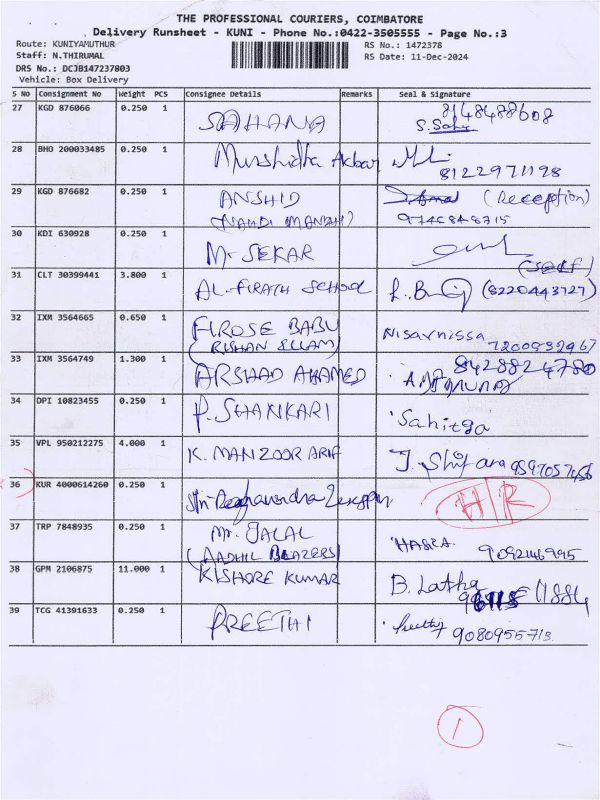 THE PROFESSIONAL COURIERS, COIMBATORE
Delivery Runsheet - KUNI - Phone No.:0422-3505555 - Page No.:3
Route: KUNIYAMUTHUR RS No.: 1472378
Staff: N.THIRUMAL RS Date: 11-Dec-2024
DRS No.: DCJB147237803
Vehicle: Box Delivery
S No Consignment No Weight PCS Consignee Details Remarks Seal & Signature
27 KGD 876066 0.250 1 SAHANA
28 BHO 200033485 0.250 1 Murshidha Acbar 8122971198
29 KGD 876682 0.250 1 ANSHID (Reception)
30 KDI 630928 0.250 1 Mr SEKAR (Self)
31 CLT 30399441 3.800 1 AL-FIRATH SCHOOL (8220443727)
32 IXM 3564665 0.650 1 FIROSE BABU Nisarnissa
33 IXM 3564749 1.300 1 ARSHAD AHAMED 8428824780
34 DPI 10823455 0.250 1 P. SHANKARI
35 VPL 950212275 4.000 1 K. MANZOOR ARIF
36 KUR 4000614260 0.250 1 Sri H/R
37 TRP 7848935 0.250 1 Mr. JALAL
(AADHIL BLAZERS)
38 GPM 2106875 11.000 1 KISHORE KUMAR B. Latha
39 TCG 41391633 0.250 1 PREETHI 9080955713
1